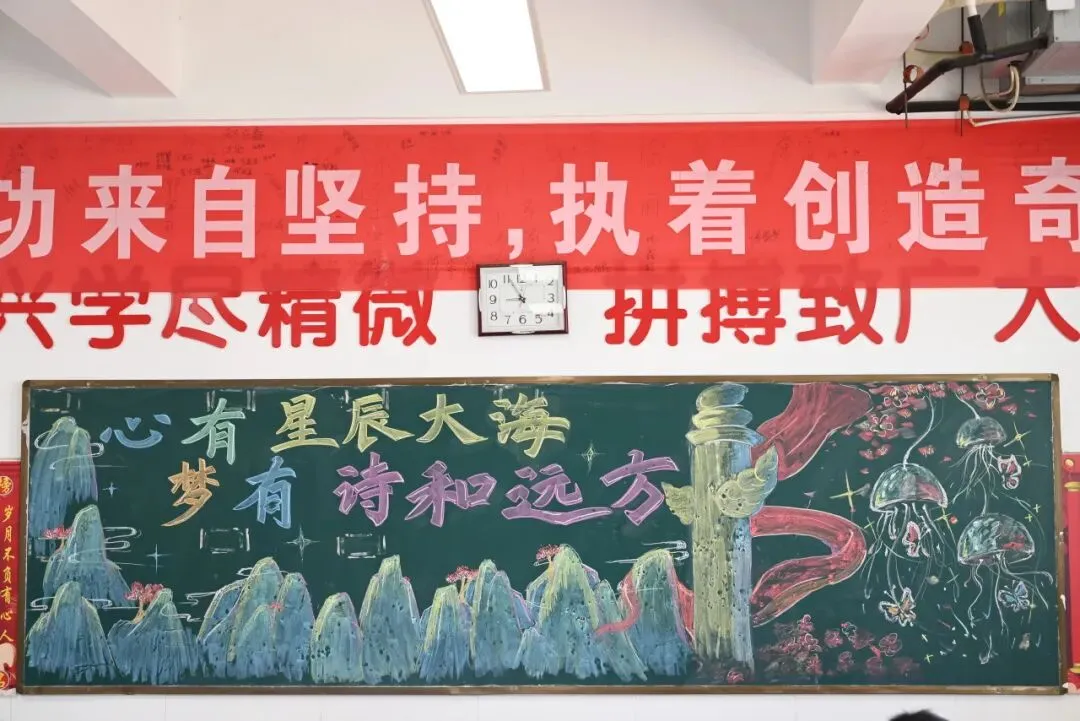 功来自坚持,执着创造奇
兴学尽精微 拼搏致广大
10 11 12 2
9 3
8 7 6 5
心有星辰大海
梦有诗和远方
岁月不负有心人